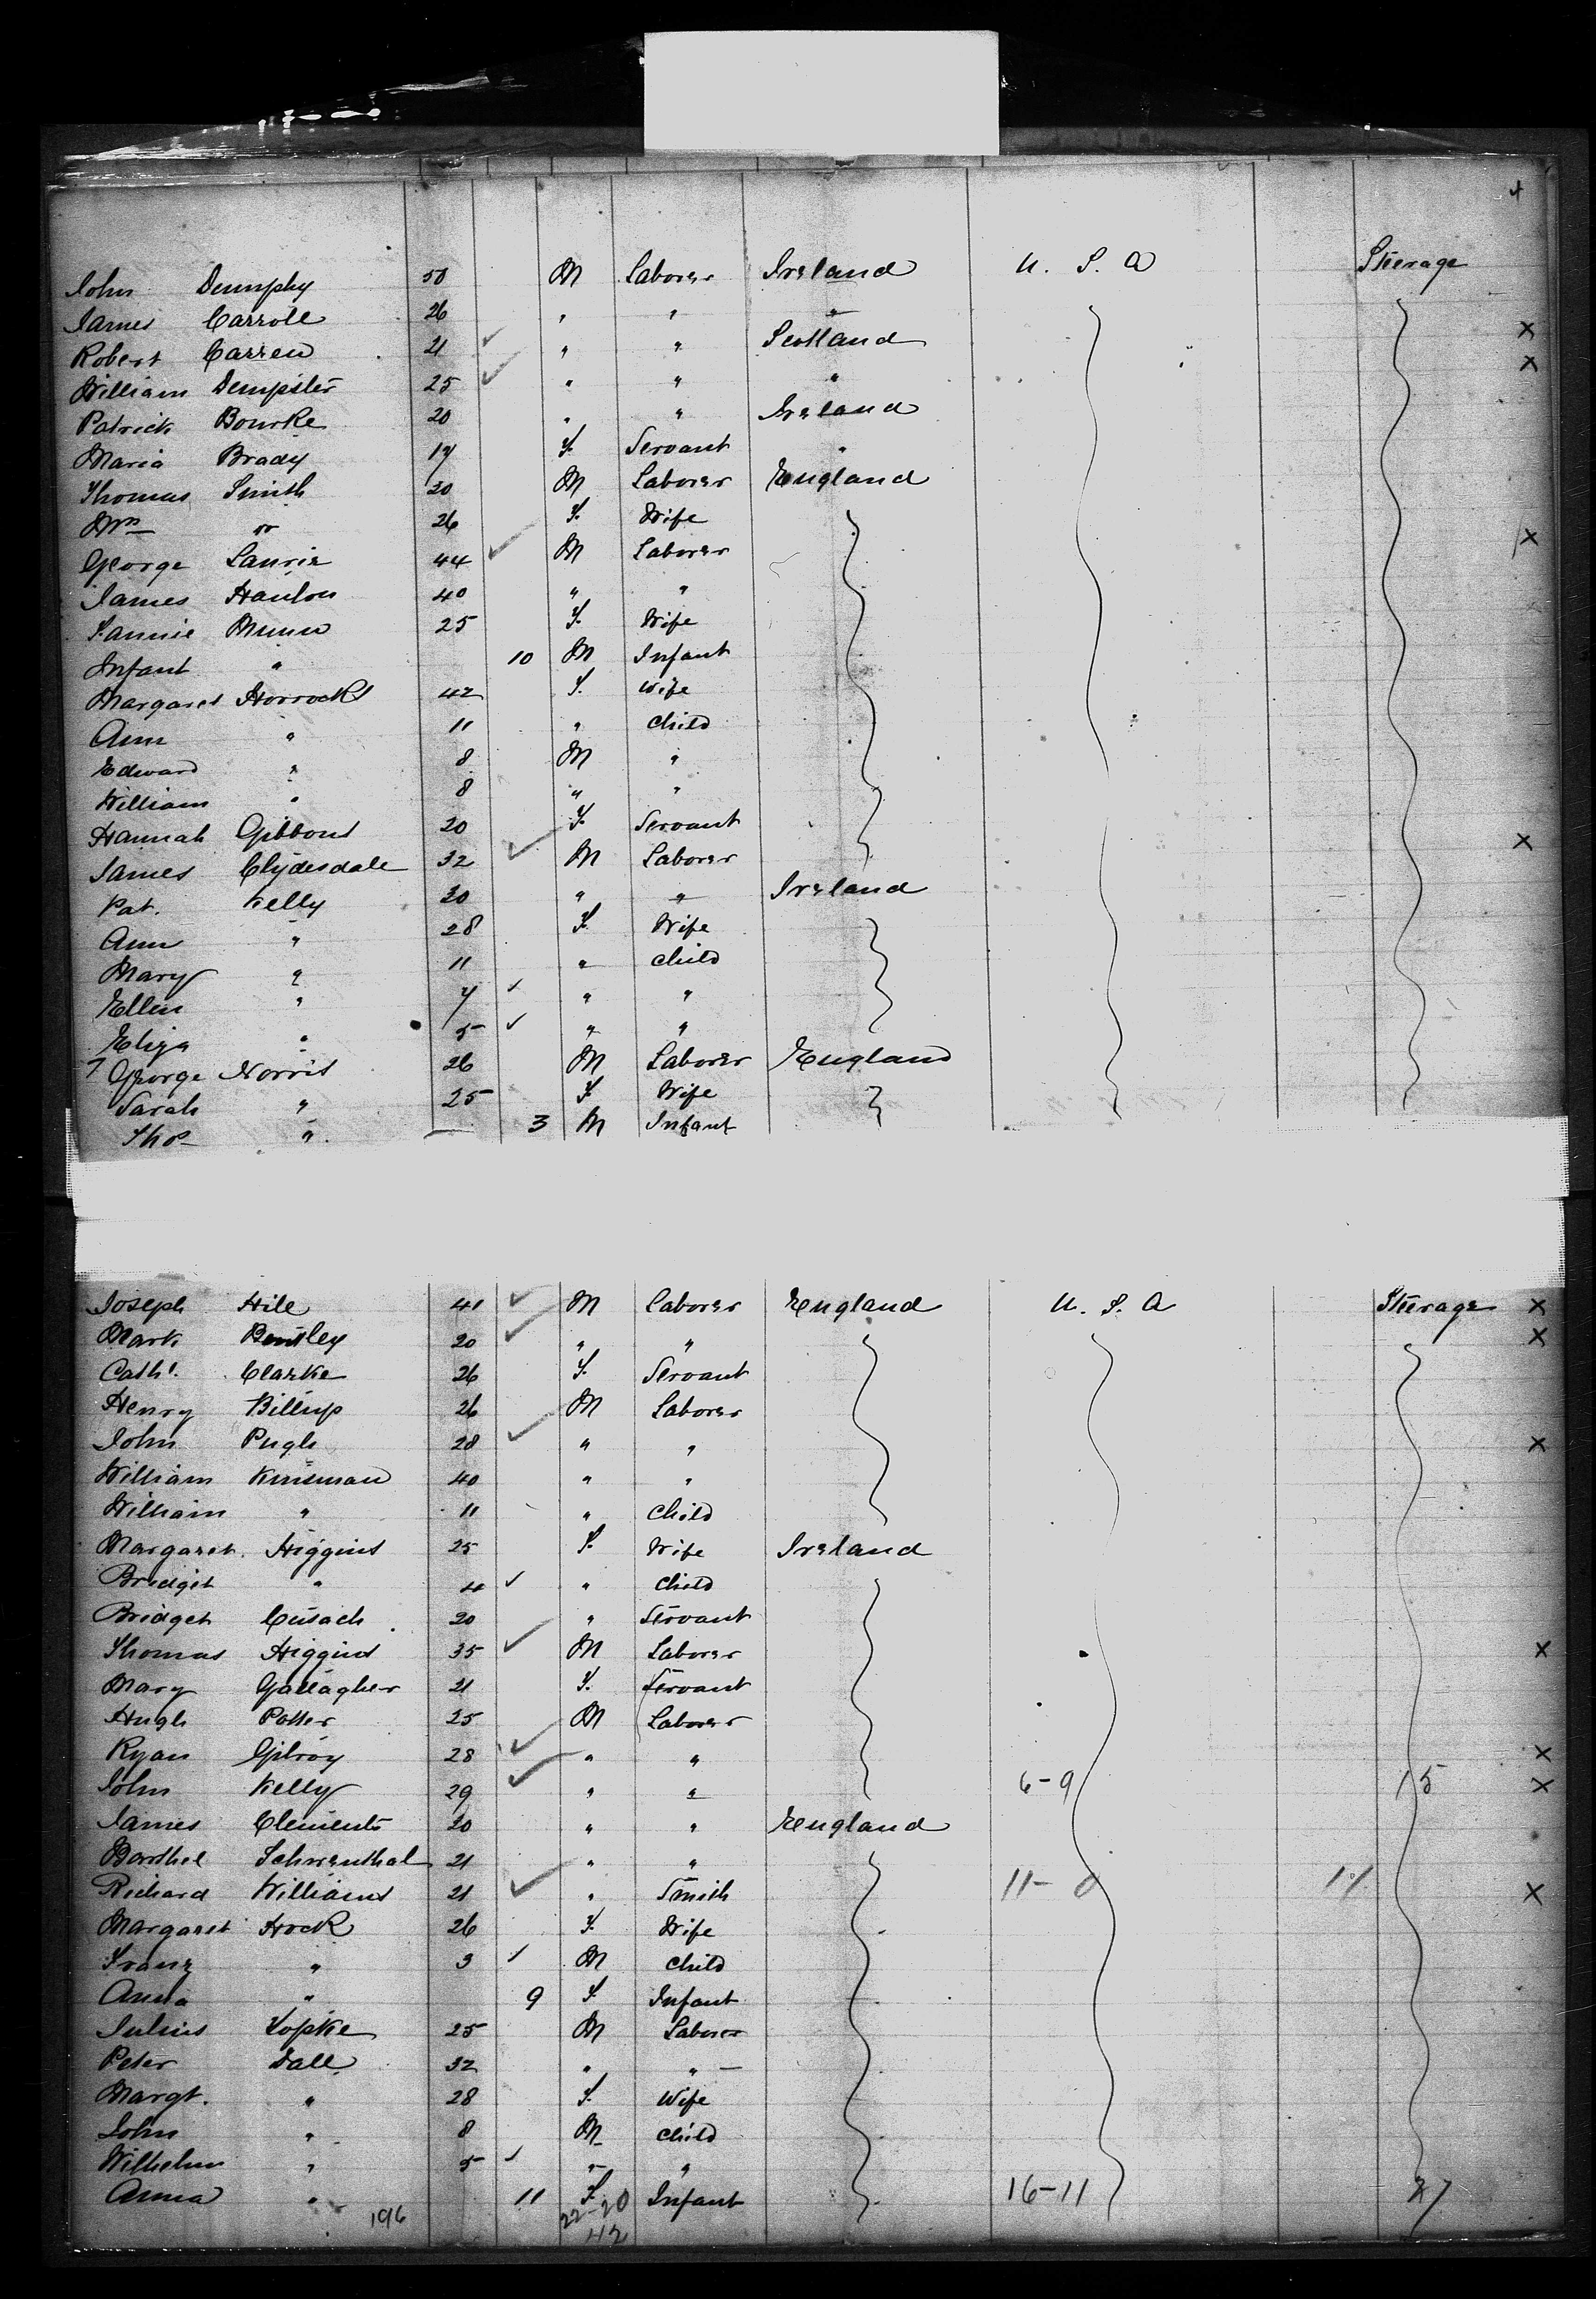 John Dumphy 50 M Laborer Ireland U. S. A Steerage
James Carroll 26 " " "
Robert Carren 21 " " Scotland
William Dempster 25 " " "
Patrick Bourke 20 " " Ireland
Maria Brady 17 F. Servant "
Thomas Smith 20 M Laborer England
Mrs " 26 F. Wife
George Laurie 44 M Laborer
James Hanlon 40 " "
Fannie Munn 25 F. Wife
Infant " 10 M Infant
Margaret Horrocks 42 F. Wife
Ann " 11 " Child
Edward " 8 M "
William " 8 " "
Hannah Gibbons 20 F. Servant
James Clydesdale 32 M Laborer
Pat. Kelly 30 " " Ireland
Ann " 28 F. Wife
Mary " 11 " Child
Ellen " 7 " "
Eliza " 5 " "
George Norris 26 M Laborer England
Sarah " 25 F Wife
Thos " 3 M Infant
Joseph Hill 41 M Laborer England U. S. A Steerage
Mark Bentley 20 " "
Cath. Clarke 26 F. Servant
Henry Billup 26 M Laborer
John Pugh 28 " "
William Kinsman 40 " "
William " 11 " Child
Margaret Higgins 25 F. Wife Ireland
Bridget " 4 " Child
Bridget Cusack 20 " Servant
Thomas Higgins 35 M Laborer
Mary Gallagher 21 F. Servant
Hugh Potter 25 M Laborer
Ryan Gilroy 28 " "
John Kelly 29 " " 6-9 15
James Clements 20 " " England
Schwenthal 21 " "
Richard Williams 21 " Smith 11-
Margaret Hock 26 F. Wife
Franz " 3 M Child
Anna " 9 F. Infant
Julius Kopke 25 M Laborer
Peter Dall 32 " "
Margt. " 28 F. Wife
John " 8 M Child
Wilhelm " 5 " "
Anna " 11 F. Infant 16-11 27
196 22-20
42